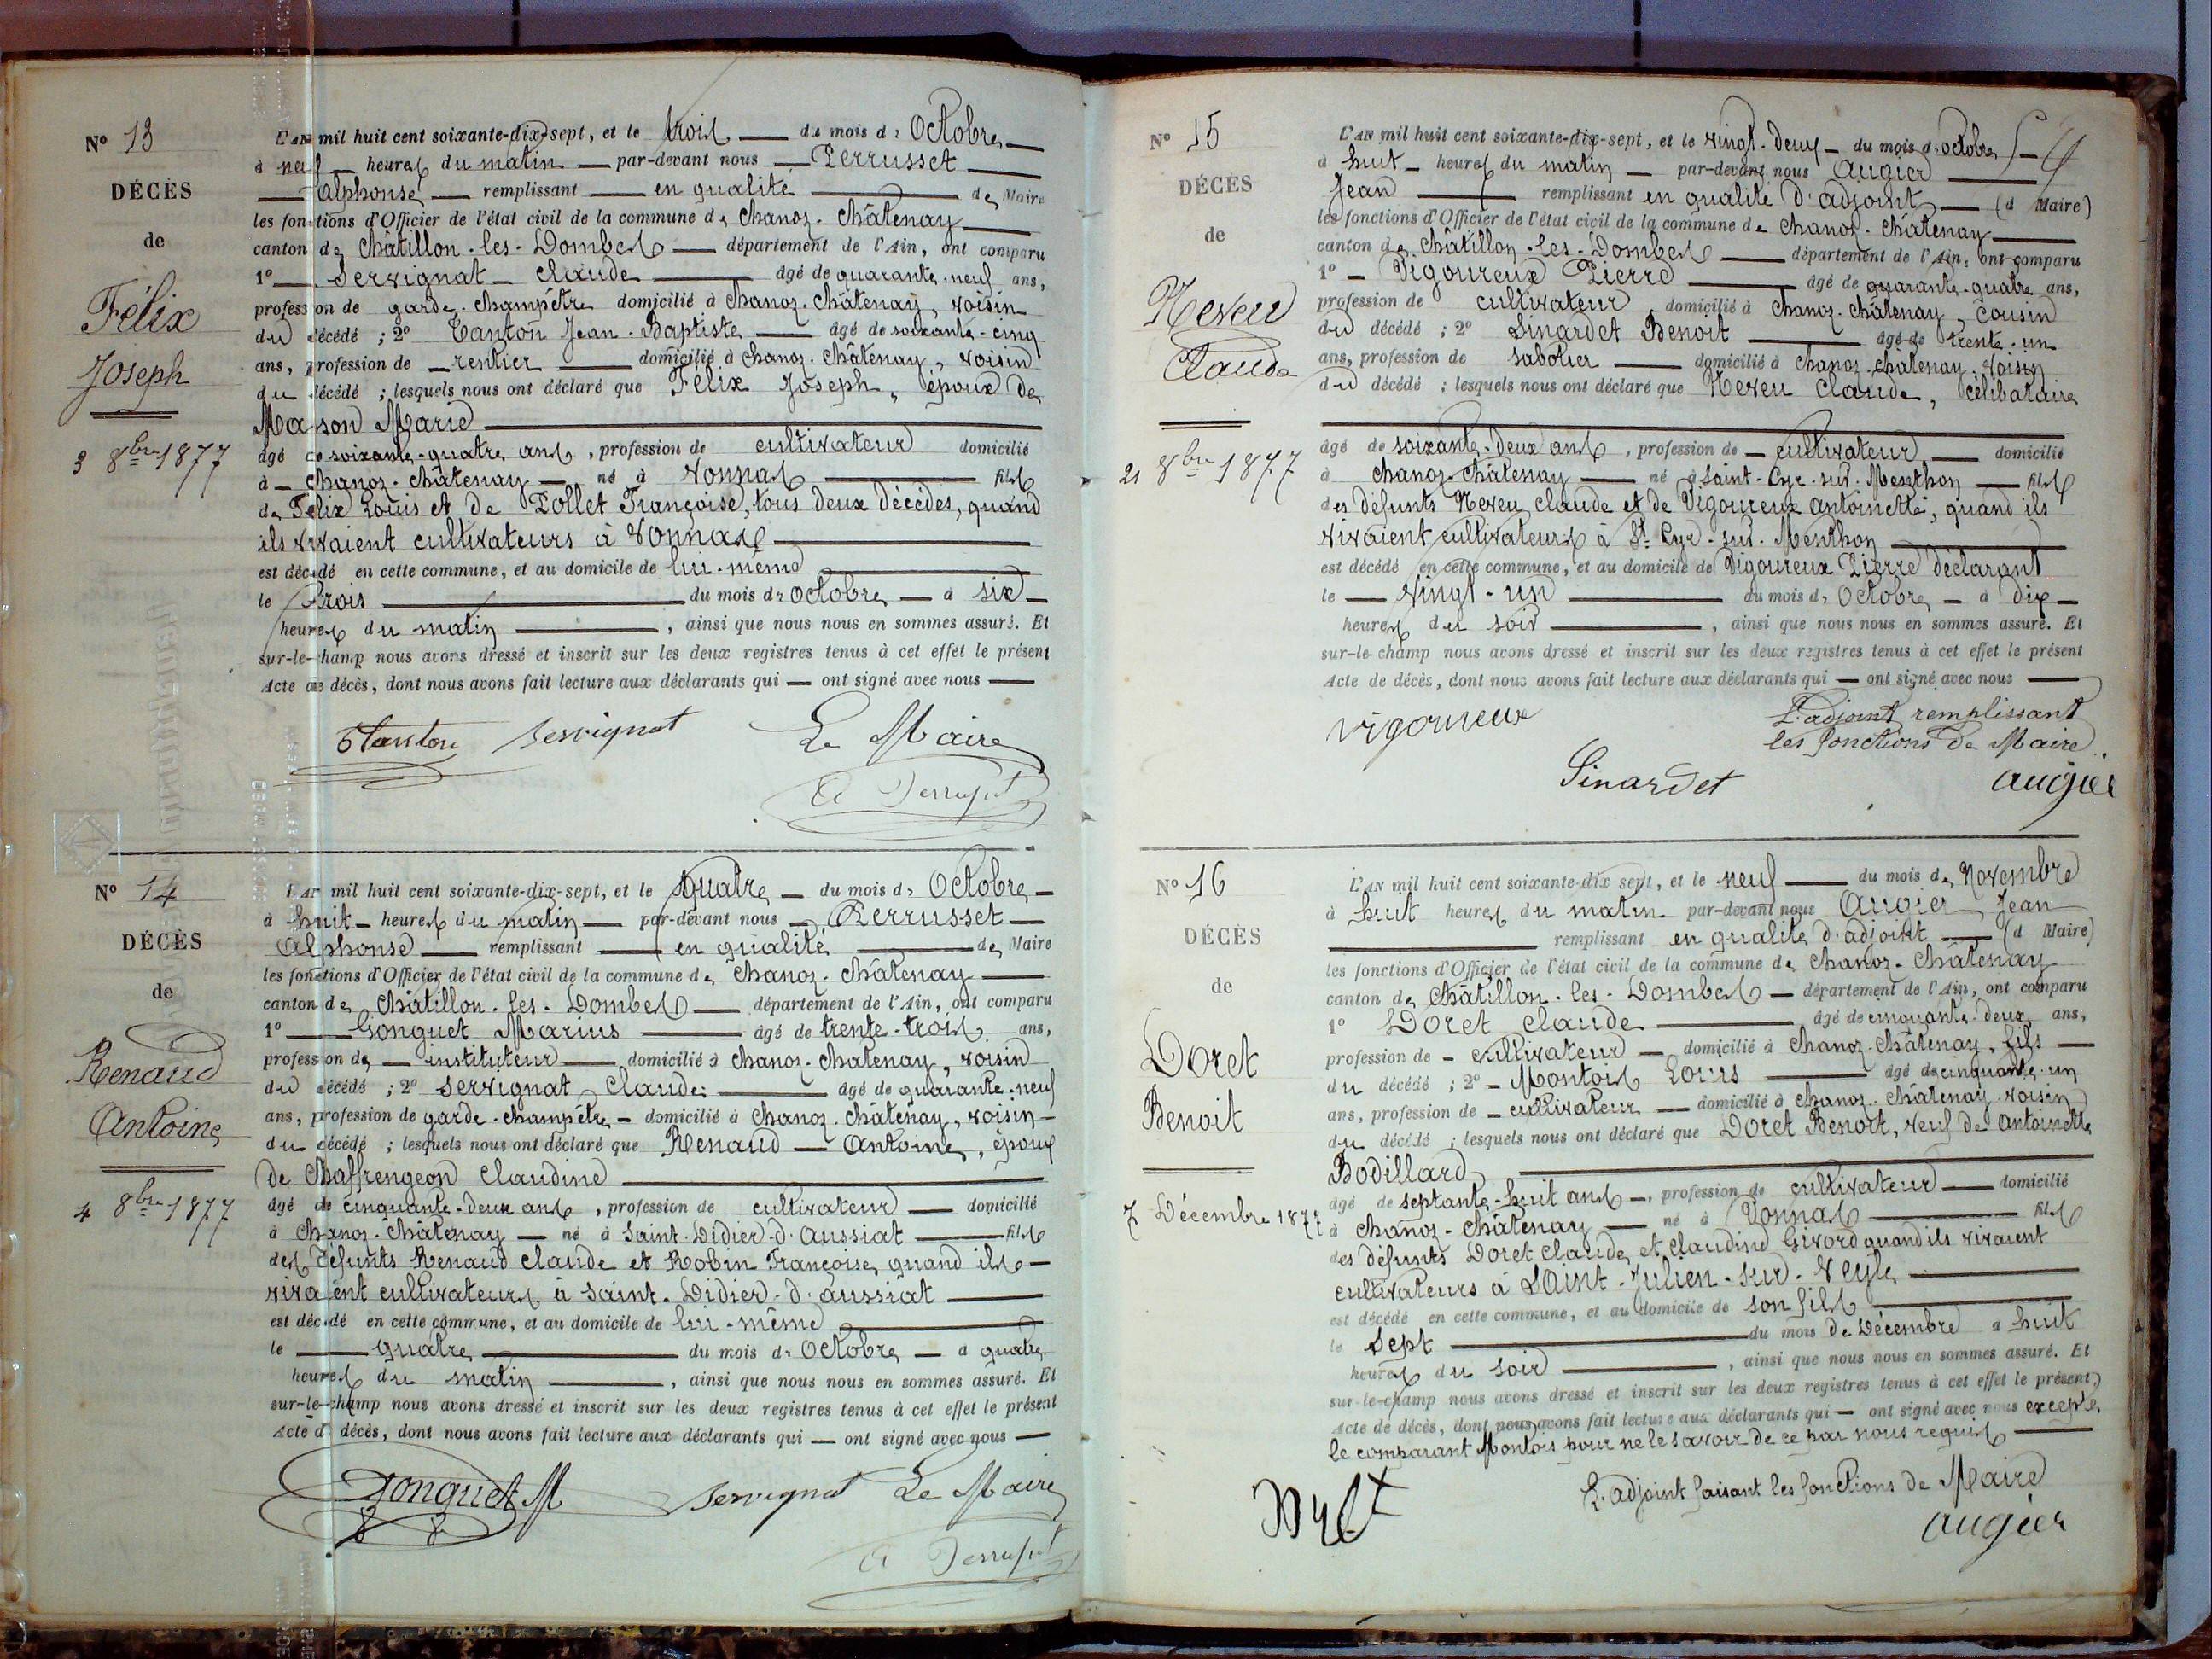 N° 13
DÉCÈS
de
Félix
Joseph
3 8bre 1877
L'AN mil huit cent soixante-dix-sept, et le trois du mois de Octobre
à neuf heures du matin par-devant nous Perrusset
Alphonse remplissant en qualité de Maire
les fonctions d'Officier de l'état civil de la commune de Chanoz-Châtenay
canton de Châtillon-les-Dombes département de l'Ain, ont comparu
1° Servignat Claude âgé de quarante-neuf ans,
profession de garde-champêtre domicilié à Chanoz-Châtenay, voisin
du décédé ; 2° Tanton Jean-Baptiste âgé de soixante-cinq
ans, profession de rentier domicilié à Chanoz-Châtenay, voisin
du décédé ; lesquels nous ont déclaré que Félix Joseph, époux de
Mason Marie
âgé de soixante-quatre ans, profession de cultivateur domicilié
à Chanoz-Châtenay né à Vonnas fils
de Félix Louis et de Pollet Françoise, tous deux décédés, quand
ils vivaient cultivateurs à Vonnas
est décédé en cette commune, et au domicile de lui-même
le trois du mois de Octobre à six
heures du matin, ainsi que nous nous en sommes assuré. Et
sur-le-champ nous avons dressé et inscrit sur les deux registres tenus à cet effet le présent
Acte de décès, dont nous avons fait lecture aux déclarants qui ont signé avec nous
Tanton Servignat Le Maire
A Perrusset
N° 14
DÉCÈS
de
Renaud
Antoine
4 8bre 1877
L'AN mil huit cent soixante-dix-sept, et le quatre du mois de Octobre
à huit heures du matin par-devant nous Perrusset
Alphonse remplissant en qualité de Maire
les fonctions d'Officier de l'état civil de la commune de Chanoz-Châtenay
canton de Châtillon-les-Dombes département de l'Ain, ont comparu
1° Gonguet Marius âgé de trente-trois ans,
profession de instituteur domicilié à Chanoz-Chatenay, voisin
du décédé ; 2° Servignat Claude âgé de quarante-neuf
ans, profession de garde-champêtre domicilié à Chanoz-Châtenay, voisin
du décédé ; lesquels nous ont déclaré que Renaud Antoine, époux
de Chaffrengeon Claudine
âgé de cinquante-deux ans, profession de cultivateur domicilié
à Chanoz-Châtenay né à Saint-Didier-d'Aussiat fils
des défunts Renaud Claude et Robin Françoise, quand ils
vivaient cultivateurs à Saint-Didier-d'aussiat
est décédé en cette commune, et au domicile de lui-même
le quatre du mois de Octobre à quatre
heures du matin, ainsi que nous nous en sommes assuré. Et
sur-le-champ nous avons dressé et inscrit sur les deux registres tenus à cet effet le présent
Acte de décès, dont nous avons fait lecture aux déclarants qui ont signé avec nous
Gonguet M Servignat Le Maire
A Perrusset
N° 15
DÉCÈS
de
Neveu
Claude
21 8bre 1877
L'AN mil huit cent soixante-dix-sept, et le vingt-deux du mois de octobre
à huit heures du matin par-devant nous Augier
Jean remplissant en qualité d'adjoint (d Maire)
les fonctions d'Officier de l'état civil de la commune de Chanoz-Châtenay
canton de Châtillon-les-Dombes département de l'Ain, ont comparu
1° Vigoureux Pierre âgé de quarante-quatre ans,
profession de cultivateur domicilié à Chanoz-Châtenay, Cousin
du décédé ; 2° Sinardet Benoit âgé de trente-un
ans, profession de sabotier domicilié à Chanoz-châtenay, voisin
du décédé ; lesquels nous ont déclaré que Neveu Claude, célibataire
âgé de soixante-deux ans, profession de cultivateur domicilié
à Chanoz-Châtenay né à Saint-Cyr-sur-Menthon fils
des défunts Neveu Claude et de Vigoureux Antoinette, quand ils
vivaient cultivateurs à St Cyr-sur-Menthon
est décédé en cette commune, et au domicile de Vigoureux Pierre déclarant
le vingt-un du mois de Octobre à dix
heures du soir, ainsi que nous nous en sommes assuré. Et
sur-le-champ nous avons dressé et inscrit sur les deux registres tenus à cet effet le présent
Acte de décès, dont nous avons fait lecture aux déclarants qui ont signé avec nous
Vigoureux
L'adjoint remplissant
les fonctions de Maire
Sinardet augier
N° 16
DÉCÈS
de
Doret
Benoit
7 Décembre 1877
L'AN mil huit cent soixante-dix sept, et le neuf du mois de Novembre
à huit heures du matin par-devant nous Augier Jean
remplissant en qualité d'adjoint (d Maire)
les fonctions d'Officier de l'état civil de la commune de Chanoz-Châtenay
canton de Châtillon-les-Dombes département de l'Ain, ont comparu
1° Doret Claude âgé de cinquante-deux ans,
profession de cultivateur domicilié à Chanoz-Châtenay, fils
du décédé ; 2° Montois Louis âgé de cinquante-un
ans, profession de cultivateur domicilié à Chanoz-Châtenay voisin
du décédé ; lesquels nous ont déclaré que Doret Benoit, veuf de Antoinette
Bodillard
âgé de septante-huit ans, profession de cultivateur domicilié
à Chanoz-Châtenay né à Vonnas fils
des défunts Doret Claude et Claudine Givord quand ils vivaient
cultivateurs à Saint-Julien-sur-Veyle
est décédé en cette commune, et au domicile de son fils
le sept du mois de Décembre à huit
heures du soir, ainsi que nous nous en sommes assuré. Et
sur-le-champ nous avons dressé et inscrit sur les deux registres tenus à cet effet le présent
Acte de décès, dont nous avons fait lecture aux déclarants qui ont signé avec nous excepté
le comparant Montois pour ne le savoir de ce par nous requis
L'adjoint faisant les fonctions de Maire
augier